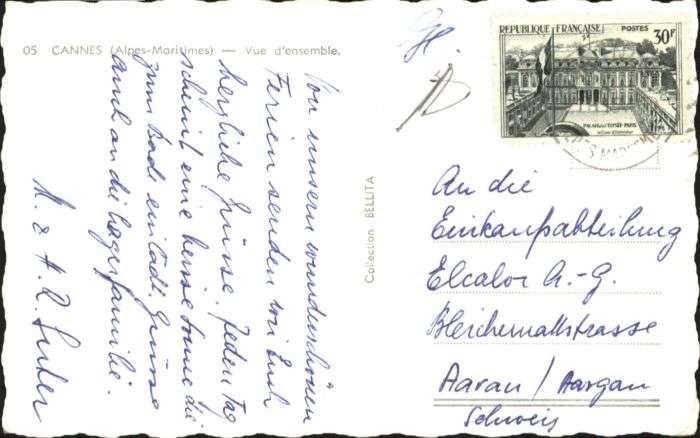 05 CANNES (Alpes-Maritimes) — Vue d'ensemble.
Von unsern wunderschönen
Ferien senden wir Euch
herzliche Grüsse. Jeden Tag
scheint eine heisse Sonne die
zum Bade einlädt. Grüsse
auch an die Lagerfamilie.
M. & H. R. Suter
Collection BELLITA
REPUBLIQUE FRANÇAISE
POSTES
30F
PALAIS de l'ELYSÉE-PARIS
An die
Einkaufsabteilung
Elcalor A.-G.
Bleichemattstrasse
Aarau / Aargau
Schweiz